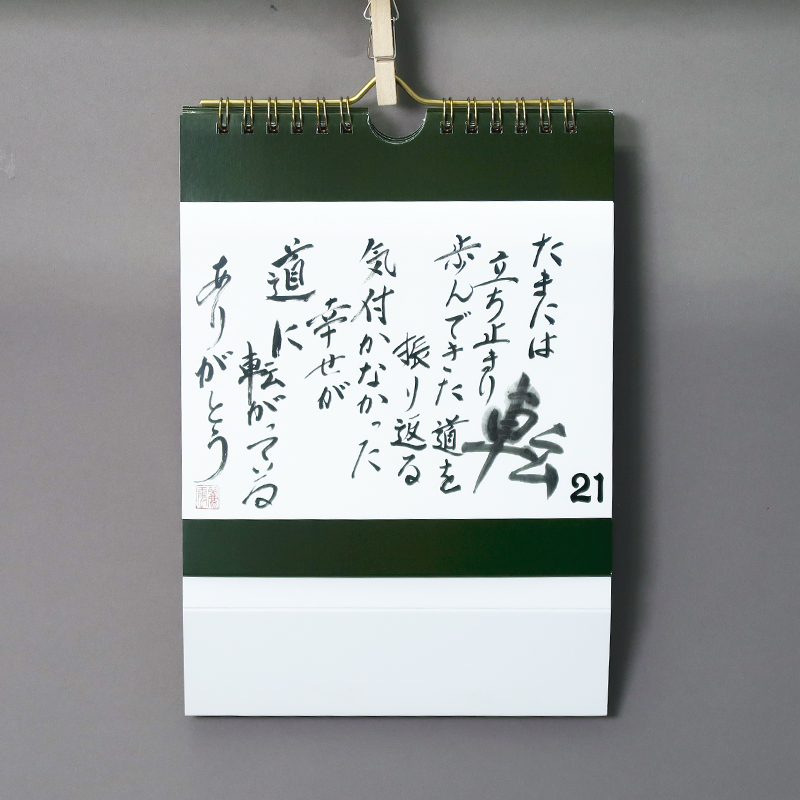 たまには
立ち止まり
歩んできた道を
振り返る
気付かなかった
幸せが
道に
転がっている
ありがとう
転
21